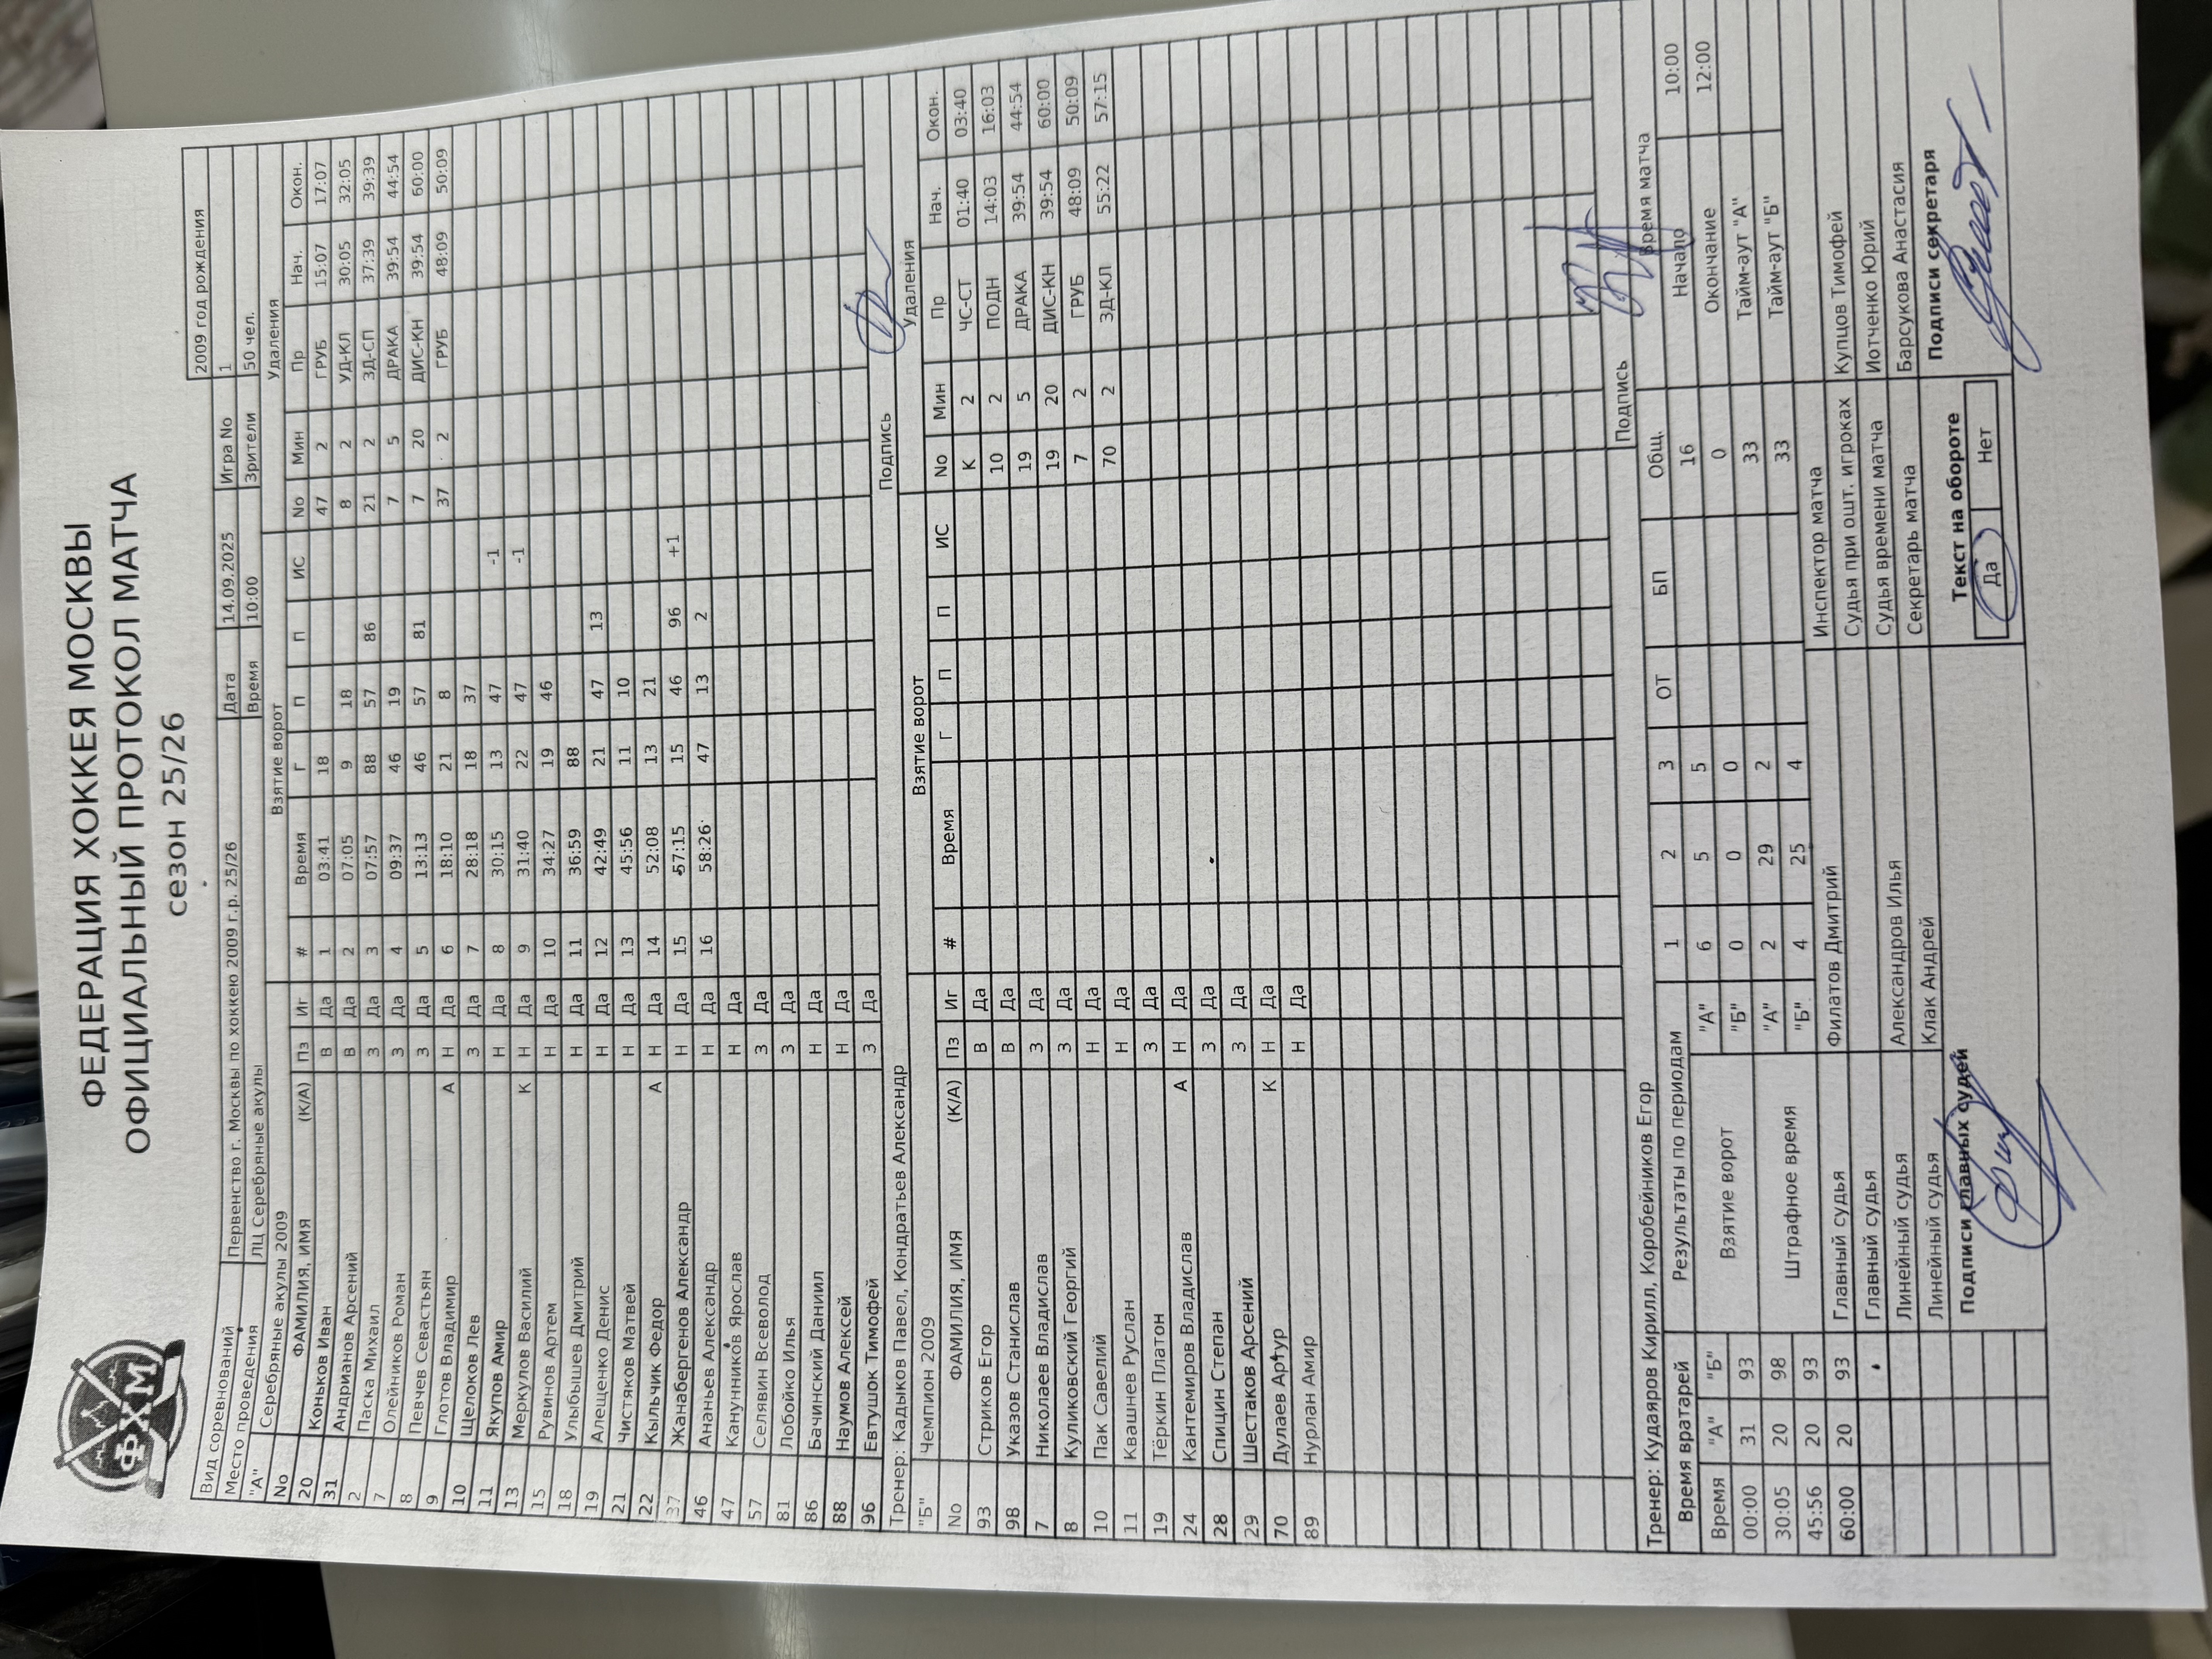 ФЕДЕРАЦИЯ ХОККЕЯ МОСКВЫ
ОФИЦИАЛЬНЫЙ ПРОТОКОЛ МАТЧА
сезон 25/26
ФХМ
2009 год рождения
Вид соревнований Первенство г. Москвы по хоккею 2009 г.р. 25/26 Дата 14.09.2025 Игра No 1
Место проведения ЛЦ Серебряные акулы Время 10:00 Зрители 50 чел.
"А" Серебряные акулы 2009 Взятие ворот Удаления
No ФАМИЛИЯ, ИМЯ (К/А) Пз Иг # Время Г П П ИС No Мин Пр Нач. Окон.
20 Коньков Иван В Да 1 03:41 18 47 2 ГРУБ 15:07 17:07
31 Андрианов Арсений В Да 2 07:05 9 18 8 2 УД-КЛ 30:05 32:05
2 Паска Михаил З Да 3 07:57 88 57 86 21 2 ЗД-СП 37:39 39:39
7 Олейников Роман З Да 4 09:37 46 19 7 5 ДРАКА 39:54 44:54
8 Певчев Севастьян З Да 5 13:13 46 57 81 7 20 ДИС-КН 39:54 60:00
9 Глотов Владимир А Н Да 6 18:10 21 8 37 2 ГРУБ 48:09 50:09
10 Щелоков Лев З Да 7 28:18 18 37
11 Якупов Амир Н Да 8 30:15 13 47 -1
13 Меркулов Василий К Н Да 9 31:40 22 47 -1
15 Рувинов Артем Н Да 10 34:27 19 46
18 Улыбышев Дмитрий Н Да 11 36:59 88
19 Алещенко Денис Н Да 12 42:49 21 47 13
21 Чистяков Матвей Н Да 13 45:56 11 10
22 Кыльчик Федор А Н Да 14 52:08 13 21
37 Жанабергенов Александр Н Да 15 57:15 15 46 96 +1
46 Ананьев Александр Н Да 16 58:26 47 13 2
47 Канунников Ярослав Н Да
57 Селявин Всеволод З Да
81 Лобойко Илья З Да
86 Бачинский Даниил Н Да
88 Наумов Алексей Н Да
96 Евтушок Тимофей З Да
Тренер: Кадыков Павел, Кондратьев Александр Подпись
"Б" Чемпион 2009 Взятие ворот Удаления
No ФАМИЛИЯ, ИМЯ (К/А) Пз Иг # Время Г П П ИС No Мин Пр Нач. Окон.
93 Стриков Егор В Да К 2 ЧС-СТ 01:40 03:40
98 Указов Станислав В Да 10 2 ПОДН 14:03 16:03
7 Николаев Владислав З Да 19 5 ДРАКА 39:54 44:54
8 Куликовский Георгий З Да 19 20 ДИС-КН 39:54 60:00
10 Пак Савелий Н Да 7 2 ГРУБ 48:09 50:09
11 Квашнев Руслан Н Да 70 2 ЗД-КЛ 55:22 57:15
19 Тёркин Платон З Да
24 Кантемиров Владислав А Н Да
28 Спицин Степан З Да
29 Шестаков Арсений З Да
70 Дулаев Артур К Н Да
89 Нурлан Амир Н Да
Тренер: Кудаяров Кирилл, Коробейников Егор Подпись
Время вратарей Результаты по периодам 1 2 3 ОТ БП Общ. Время матча
Время "А" "Б" Взятие ворот "А" 6 5 5 16 Начало 10:00
00:00 31 93 "Б" 0 0 0 0 Окончание 12:00
30:05 20 98 Штрафное время "А" 2 29 2 33 Тайм-аут "А"
45:56 20 93 "Б" 4 25 4 33 Тайм-аут "Б"
60:00 20 93 Главный судья Филатов Дмитрий Инспектор матча
Главный судья Судья при ошт. игроках Купцов Тимофей
Линейный судья Александров Илья Судья времени матча Иотченко Юрий
Линейный судья Клак Андрей Секретарь матча Барсукова Анастасия
Подписи главных судей Текст на обороте Подписи секретаря
Да Нет